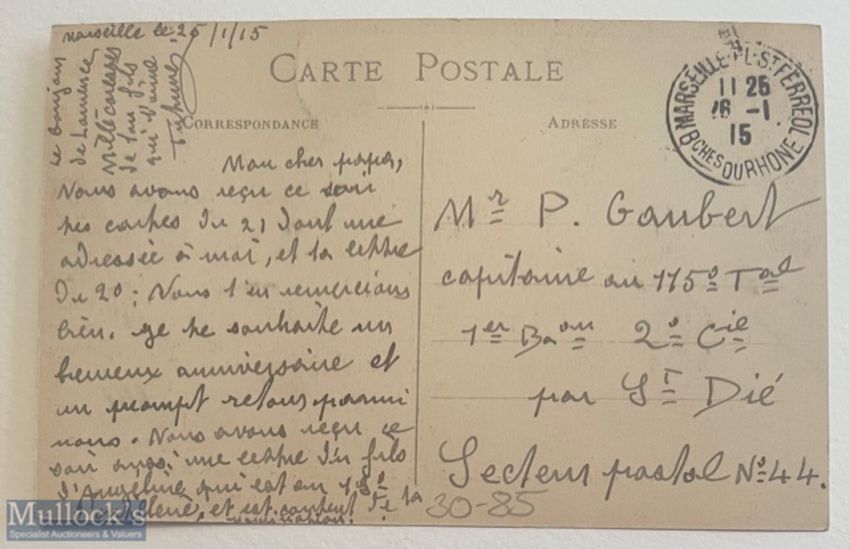 Marseille le 25/1/15
CARTE POSTALE
CORRESPONDANCE
ADRESSE
Mon cher papa,
Nous avons reçu ce soir
tes cartes du 21 dont une
adressée à moi, et ta lettre
du 20; Nous t'en remercions
bien. Je te souhaite un
heureux anniversaire et
un prompt retour parmi
nous. Nous avons reçu ce
soir aussi une lettre du fils
d'Angeline qui est au
et est content de ta
nomination.
Le bonjour
de Laurence
Mille caresses
de ton fils
qui t'aime
MARSEILLE PL. ST FERREOL
11 25
26 -1
15
BCHES DU RHONE
Mr P. Gaubert
capitaine au 115e Tal
1er Baon 2e Cie
par St Dié
Secteur postal No 44.
30-85
Mullock's
Specialist Auctioneers & Valuers